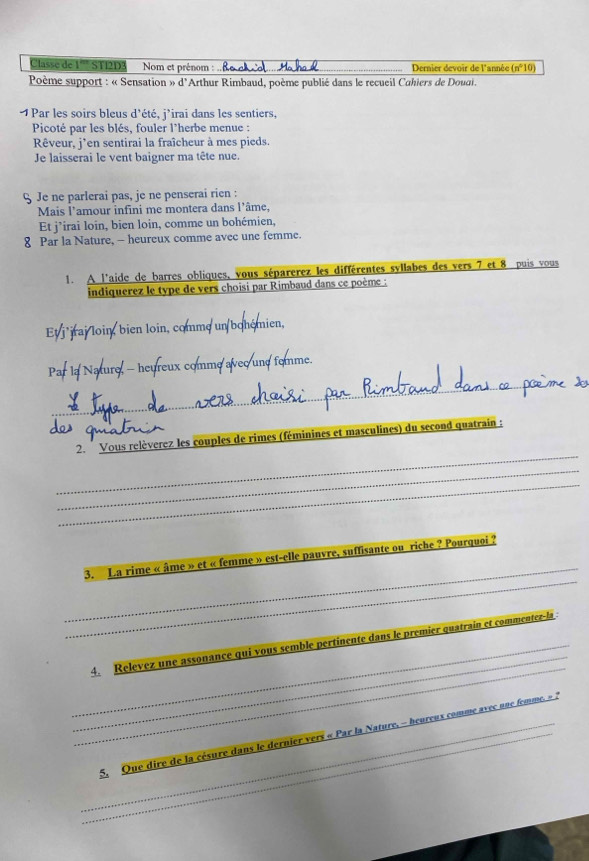 Classe de 1ère STI2D3 Nom et prénom : Rachid Mahed Dernier devoir de l'année (n°10)
Poème support : « Sensation » d'Arthur Rimbaud, poème publié dans le recueil Cahiers de Douai.
1 Par les soirs bleus d'été, j'irai dans les sentiers,
Picoté par les blés, fouler l'herbe menue :
Rêveur, j'en sentirai la fraîcheur à mes pieds.
Je laisserai le vent baigner ma tête nue.
5 Je ne parlerai pas, je ne penserai rien :
Mais l'amour infini me montera dans l'âme,
Et j'irai loin, bien loin, comme un bohémien,
8 Par la Nature, – heureux comme avec une femme.
1. A l'aide de barres obliques, vous séparerez les différentes syllabes des vers 7 et 8 puis vous
indiquerez le type de vers choisi par Rimbaud dans ce poème :
Et/j'irai/loin/, bien loin, comme/un/bohémien,
Par/la/Nature/, – heureux comme/avec/une femme.
Le type de vers choisi par Rimbaud dans ce poème
des quatrin
2. Vous relèverez les couples de rimes (féminines et masculines) du second quatrain :
3. La rime « âme » et « femme » est-elle pauvre, suffisante ou riche ? Pourquoi ?
4. Relevez une assonance qui vous semble pertinente dans le premier quatrain et commentez-la :
5. Que dire de la césure dans le dernier vers « Par la Nature, – heureux comme avec une femme. » ?